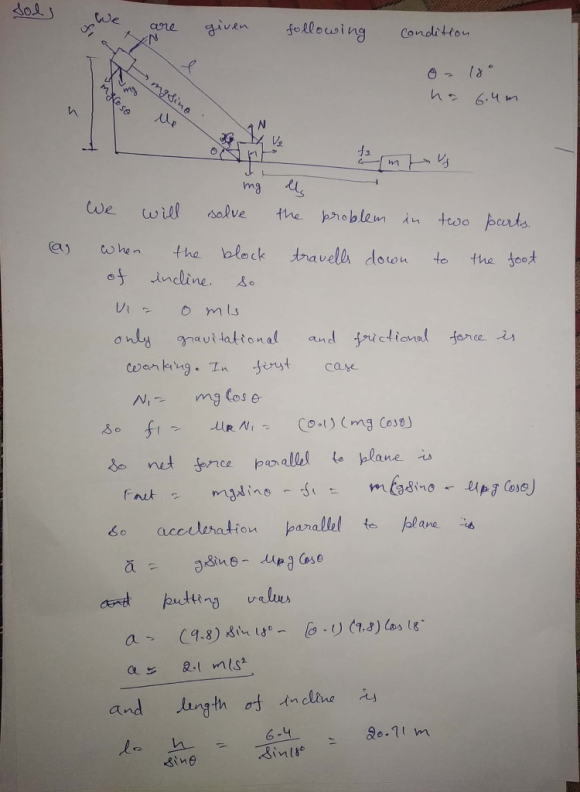 Sol)
We are given following condition
θ = 18°
h = 6.4 m
N
l
mg sinθ
mg cosθ
h
N
V2
θ
m
mg
μs
f2
m
We will solve the problem in two parts.
(a) when the block travells down to the foot
of incline. So
V1 = 0 m/s
only gravitational and frictional force is
working. In first case
N1 = mg cosθ
So f1 = μk N1 = (0.1) (mg cosθ)
So net force parallel to plane is
Fnet = mg sinθ - f1 = m(g sinθ - μk g cosθ)
So acceleration parallel to plane is
a = g sinθ - μk g cosθ
putting values
a = (9.8) sin 18° - (0.1) (9.8) cos 18°
a = 2.1 m/s²
and length of incline is
l = h/sinθ = 6.4/sin18° = 20.71 m